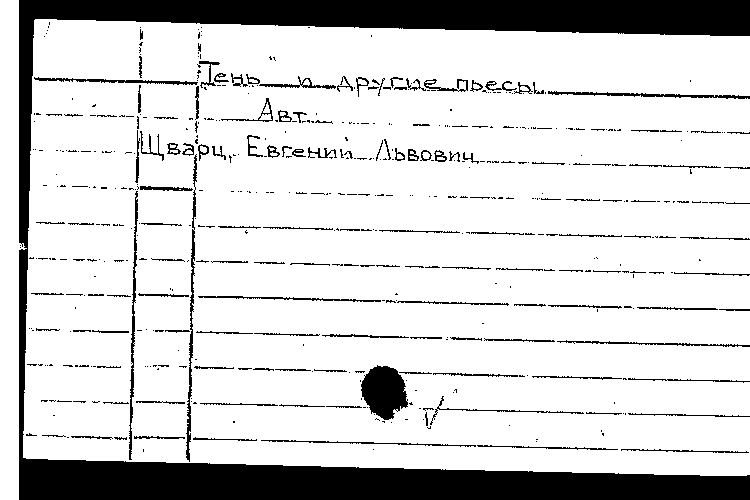 „Тень" и другие пьесы
Авт.
Шварц, Евгений Львович